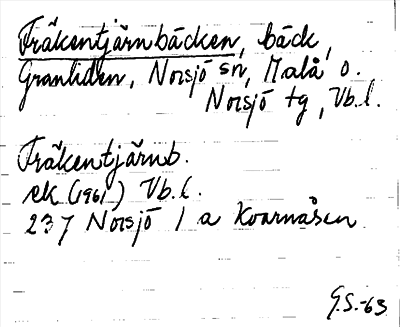 Fräkentjärnbäcken, bäck,
Granliden, Norsjö sn, Malå o.
Norsjö tg, Vb.l.
Fräkentjärnb.
ek (1961) Vb.l.
237 Norsjö 1 a Kvarnåsen
G.S.-63